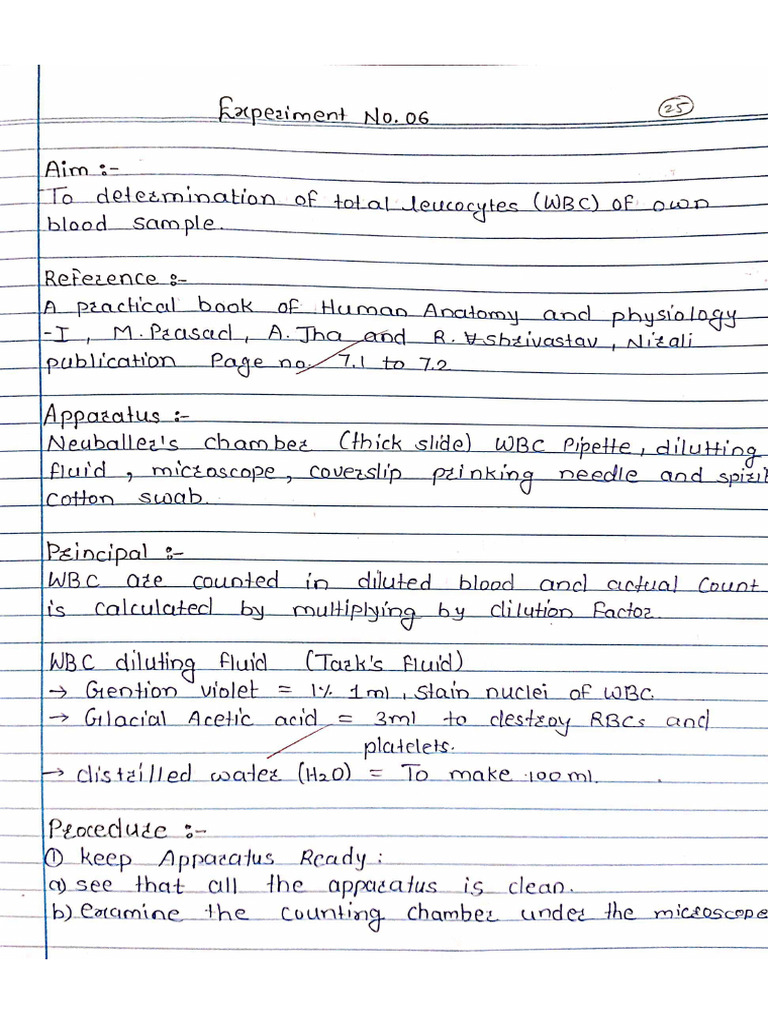 Experiment No. 06
25
Aim :-
To determination of total leucocytes (WBC) of own
blood sample.
Reference :-
A practical book of Human Anatomy and physiology
-I , M. Prasad, A. Jha and R. Shrivastav, Nirali
publication Page no. 7.1 to 7.2
Apparatus :-
Neuballer's chamber (thick slide) WBC Pipette, dilutting
fluid , microscope, coverslip prinking needle and spirit
cotton swab.
Principal :-
WBC are counted in diluted blood and actual Count
is calculated by multiplying by dilution factor.
WBC diluting fluid (Tark's fluid)
→ Grention violet = 1% 1ml, stain nuclei of WBC.
→ Glacial Acetic acid = 3ml to destroy RBCs and
platelets.
→ distrilled water (H2O) = To make 100ml.
Procedure :-
① keep Apparatus Ready :
a) see that all the apparatus is clean.
b) examine the counting chamber under the microscope